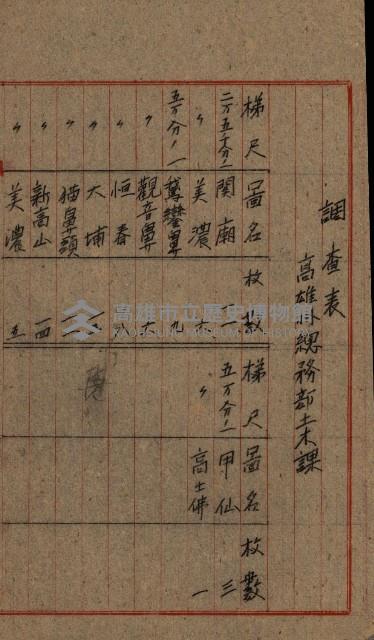 調查表
高雄州總務部土木課
梯尺 圖名 枚數 梯尺 圖名 枚數
二万五千分ノ一 関廟 一二 五万分ノ一 甲仙 三
〃 美濃 六 〃 高士佛 一
五万分ノ一 鵝鑾鼻 九
〃 觀音鼻 六
〃 恒春 八
〃 大埔
〃 猫鼻頭
〃 新高山 一四
〃 美濃 五
高雄市立歷史博物館